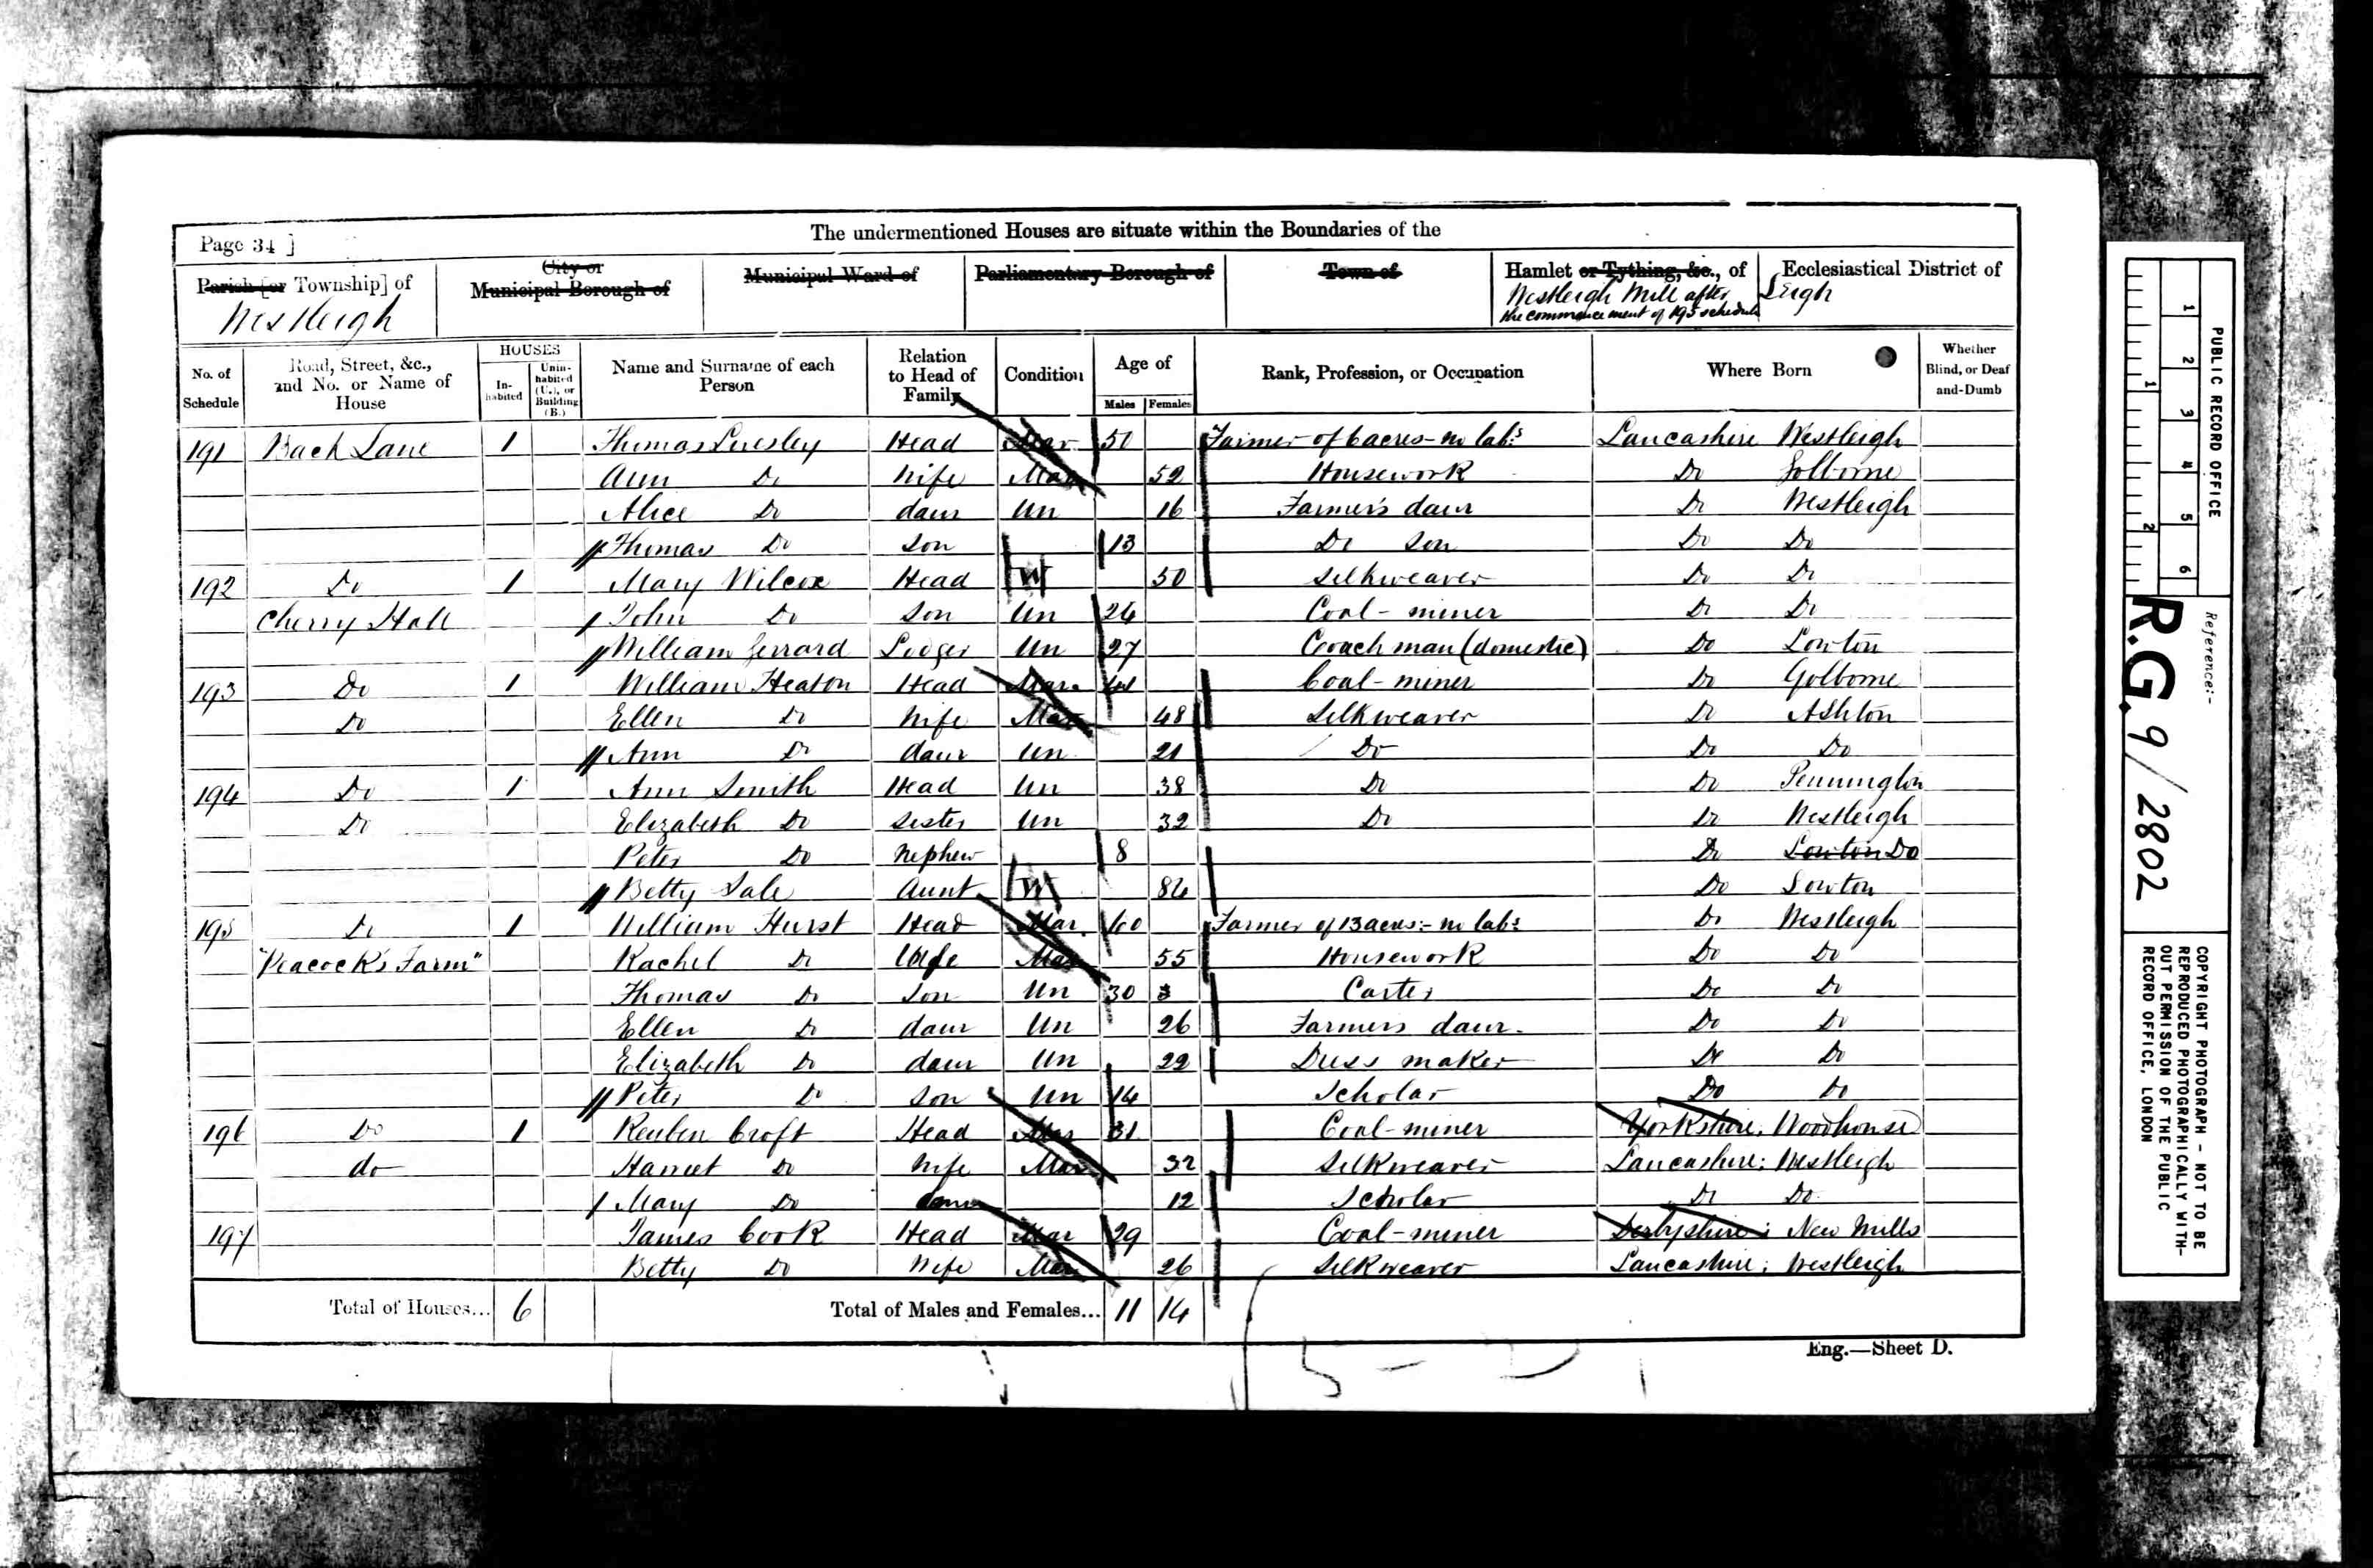 The undermentioned Houses are situate within the Boundaries of the
Page 34 ]
Parish [or Township] of
Westleigh
City or
Municipal Borough of
Municipal Ward of
Parliamentary Borough of
Town of
Hamlet or Tything, &c., of
Westleigh Mill after
the commencement of 195 schedule
Ecclesiastical District of
Leigh
No. of Schedule
Road, Street, &c., and No. or Name of House
HOUSES
In-habited
Unin-habited (U.), or Building (B.)
Name and Surname of each Person
Relation to Head of Family
Condition
Age of
Males
Females
Rank, Profession, or Occupation
Where Born
Whether Blind, or Deaf and-Dumb
191 Back Lane 1 Thomas Head Mar 51 Farmer of 6 acres - no labs Lancashire Westleigh
Ann Do Wife Mar 52 Housework Do Golborne
Alice Do daur Un 16 Farmer's daur Do Westleigh
Thomas Do Son 13 Do Son Do Do
192 Do 1 Mary Wilcox Head W 50 Silkweaver Do Do
Cherry Hall John Do Son Un 26 Coal-miner Do Do
William Gerrard Lodger Un 27 Coachman (domestic) Do Lowton
193 Do 1 William Heaton Head Mar 41 Coal-miner Do Golborne
Do Ellen Do Wife Mar 48 Silkweaver Do Ashton
Ann Do daur Un 21 Do Do Do
194 Do 1 Ann Smith Head Un 38 Do Do Pennington
Do Elizabeth Do Sister Un 32 Do Do Westleigh
Peter Do Nephew 8 Do Lowton Do
Betty Sale Aunt W 84 Do Lowton
195 Do 1 William Hurst Head Mar 60 Farmer of 13 acres:- no labs Do Westleigh
"Peacock's Farm" Rachel Do Wife Mar 55 Housework Do Do
Thomas Do Son Un 30 3 Carter Do Do
Ellen Do daur Un 26 Farmers daur. Do Do
Elizabeth Do daur Un 22 Dress maker Do Do
Peter Do Son Un 14 Scholar Do Do
196 Do 1 Reuben Croft Head Mar 31 Coal-miner Yorkshire; Woodhouse
do Harriet Do Wife Mar 32 Silkweaver Lancashire; Westleigh
Mary Do daur 12 Scholar Do Do
197 James Cook Head Mar 29 Coal-miner Derbyshire; New Mills
Betty Do Wife Mar 26 Silkweaver Lancashire; Westleigh
Total of Houses... 6 Total of Males and Females... 11 14
Eng.—Sheet D.
PUBLIC RECORD OFFICE
1 2 3 4 5 6
1 2
Reference:-
R.G. 9/2802
COPYRIGHT PHOTOGRAPH - NOT TO BE
REPRODUCED PHOTOGRAPHICALLY WITH-
OUT PERMISSION OF THE PUBLIC
RECORD OFFICE, LONDON